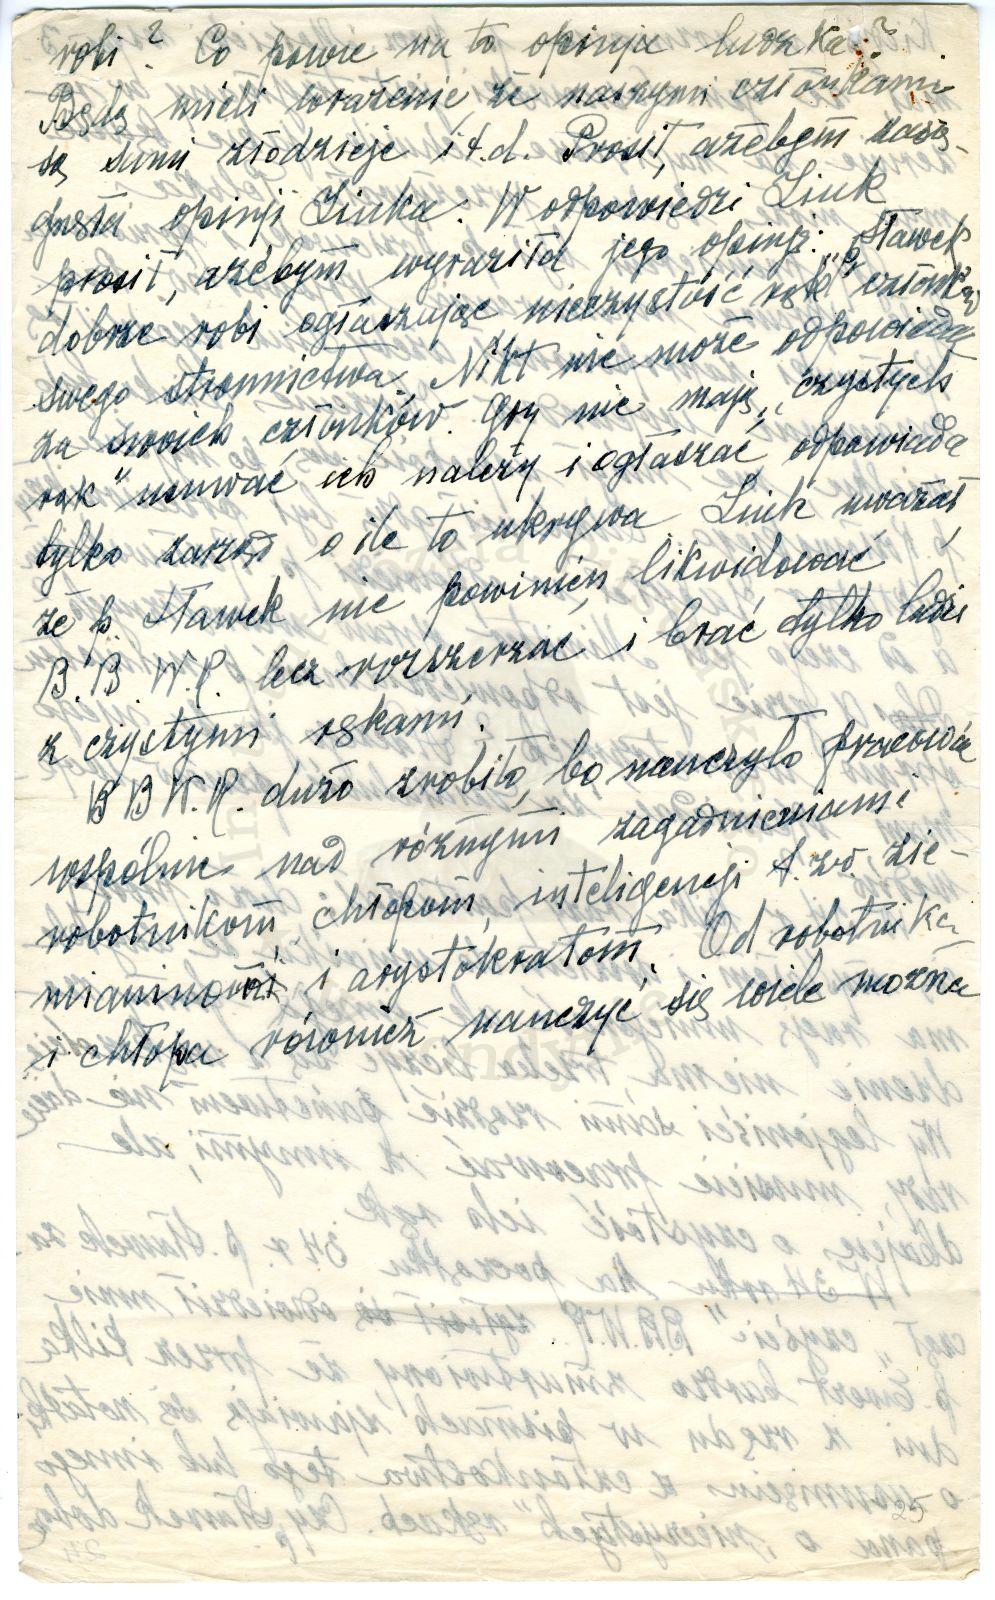 robi? Co powie na to opinja ludzka?
Będą mieli wrażenie, że naszymi członkami
są sami złodzieje i t.d. Prosił, ażebym zasię-
gnęła opinji Ziuka. W odpowiedzi Ziuk
prosił, ażebym wyraziła jego opinję: „p. Sławek
dobrze robi ogłaszając nieczystość rąk członków
swego stronnictwa. Nikt nie może odpowiadać
za swoich członków. Gdy nie mają „czystych
rąk" usuwać ich należy i ogłaszać, odpowiada
tylko zarząd o ile to ukrywa. Ziuk uważał,
że p. Sławek nie powinien likwidować
B.B.W.R. lecz rozszerzać i brać tylko ludzi
z czystymi rękami.
BBW.R. dużo zrobiło, bo nauczyło pracować
wspólnie nad różnymi zagadnieniami
robotnikom, chłopom, inteligencji t.zw. zie-
mianinowi i arystokratom. Od robotnika
i chłopa również nauczyć się wiele można
25